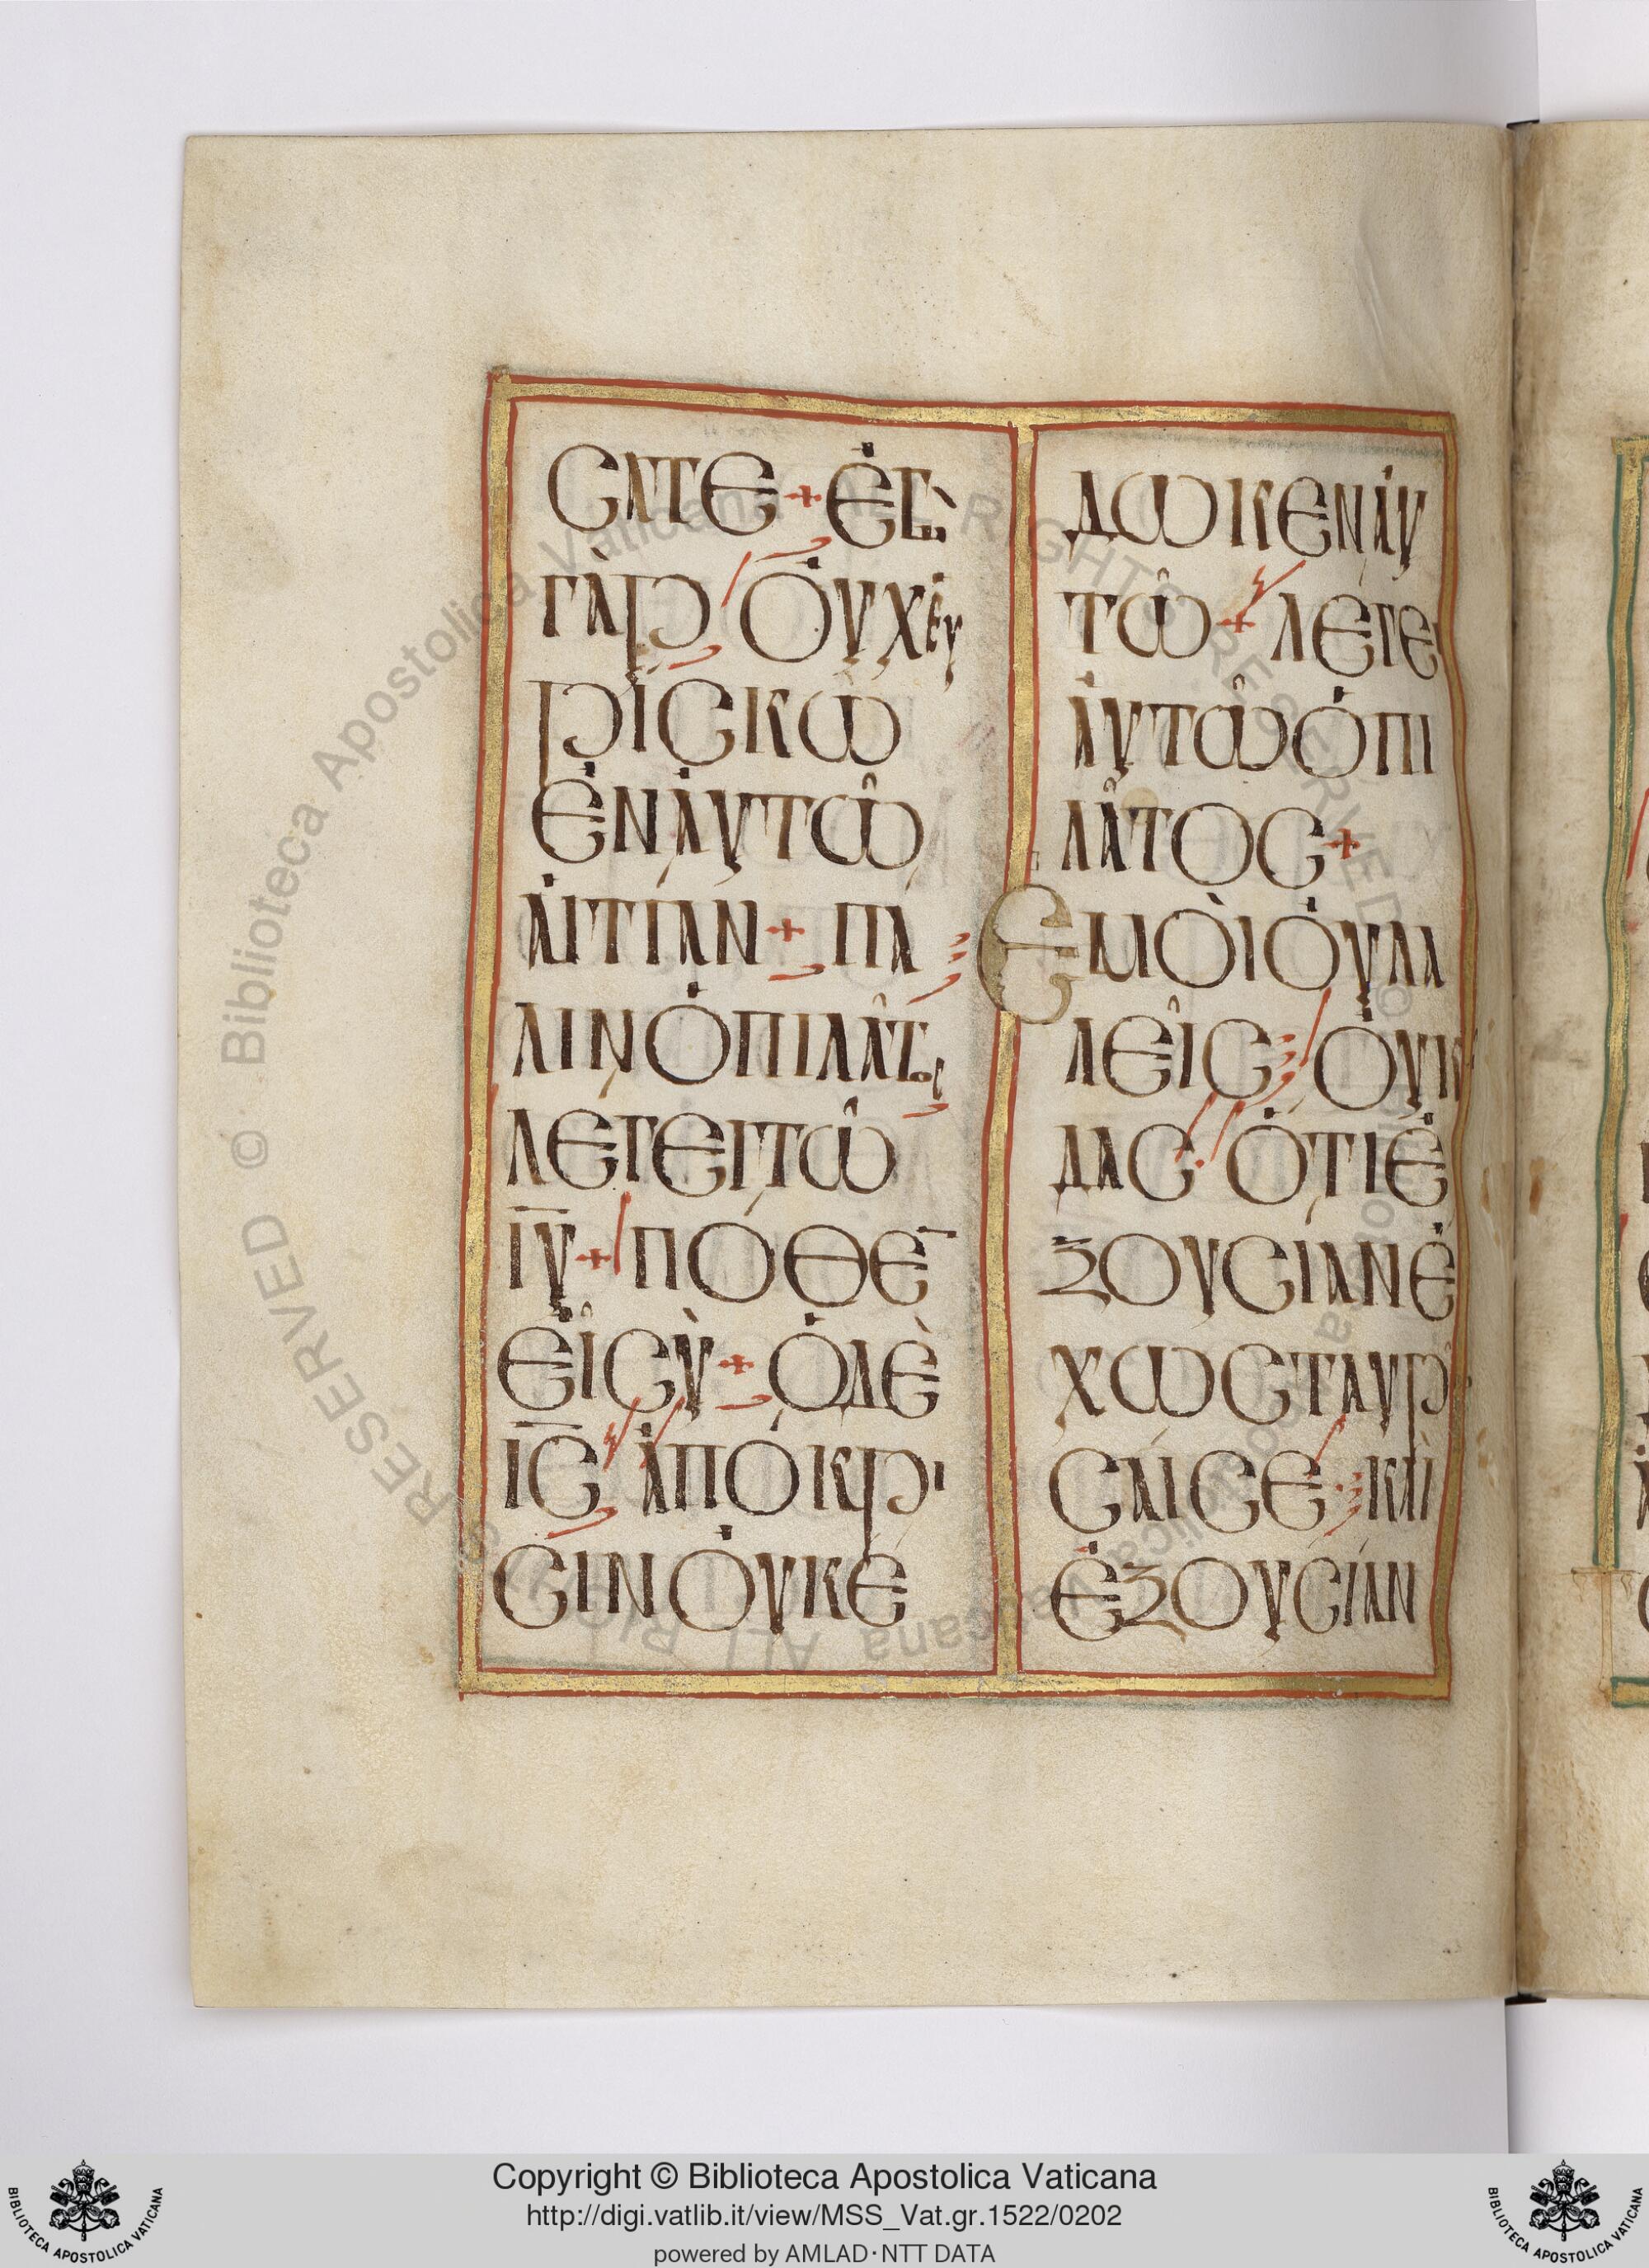 ϹΑΤΕ + ἘΓὼ
ΓὰΡ ΟὐΧ ἑΥ
ΡίϹΚΩ
ἘΝ ΑὐΤῶ
ΑἰΤΙΑΝ + ΠΑ
ΛΙΝ Ὁ ΠΙΛᾶΤος
ΛΕΓΕΙ Τῶ
Ι̅Υ̅ + ΠΟΘΕ̅
Εἶ Ϲὺ + Ὁ Δὲ
Ι̅Ϲ̅ ἈΠόΚΡΙ
ϹΙΝ ΟὐΚ Ἐ
ΔΩΚΕΝ Αὐ
Τῶ + ΛΕΓΕΙ
ΑὐΤῶ Ὁ ΠΙ
ΛᾶΤΟϹ +
ΕΜΟὶ Οὐ ΛΑ
ΛΕῖϹ ΟὐΚ Οἶ
ΔΑϹ · ὉΤΙ Ἐ
ΞΟΥϹΙΑΝ Ἐ
ΧΩ ϹΤΑΥΡῶ
ϹΑΙ ϹΕ · ΚΑὶ
ἘΞΟΥϹίΑΝ
© Biblioteca Apostolica Vaticana ALL RIGHTS RESERVED
Copyright © Biblioteca Apostolica Vaticana
http://digi.vatlib.it/view/MSS_Vat.gr.1522/0202
powered by AMLAD·NTT DATA
BIBLIOTECA APOSTOLICA VATICANA
BIBLIOTECA APOSTOLICA VATICANA